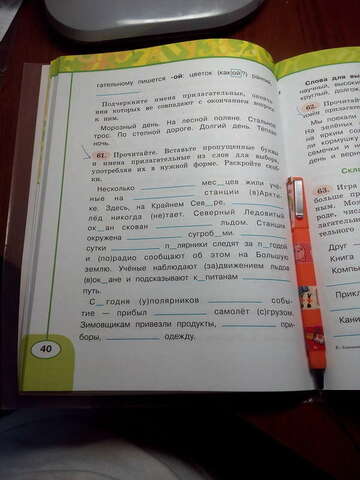 гательному пишется -ой: цветок (какой?) ранний
Подчеркните имена прилагательные, оконча-
ния которых не совпадают с окончанием вопроса
к ним.
Морозный день. На лесной поляне. Стальной
трос. По степной дороге. Долгий день. Тёплая
ночь.
61. Прочитайте. Вставьте пропущенные буквы
и имена прилагательные из слов для выбора,
употребляя их в нужной форме. Раскройте скоб-
ки.
Несколько ____ мес_цев жили учё-
ные на ____ станции (в)Аркти-
ке. Здесь, на Крайнем Сев_ре, ____
лёд никогда (не)тает. Северный Ледовитый
ок_ан скован ____ льдом. Станция
окружена ____ сугроб_ми. ____
сутки ____ п_лярники следят за п_годой
и (по)радио сообщают об этом на Большую
землю. Учёные наблюдают (за)движением льдов
(в)ок_ане и подсказывают к_питанам ____
путь.
С_годня (у)полярников ____ собы-
тие — прибыл ____ самолёт (с)грузом.
Зимовщикам привезли продукты, ____ при-
боры, ____ одежду.
40
Слова для вы
научный, высоки
круглый, долгож
62.
имён прилагател
Мы поехали
На зелёных
на ярком со
ли кормушку
семечки и н
день и верн
Скл
63. Игра
больше пр
ным. Мол
роде, числ
лагательн
тельного
Друг
Книга
Компа
Прикл
Канику